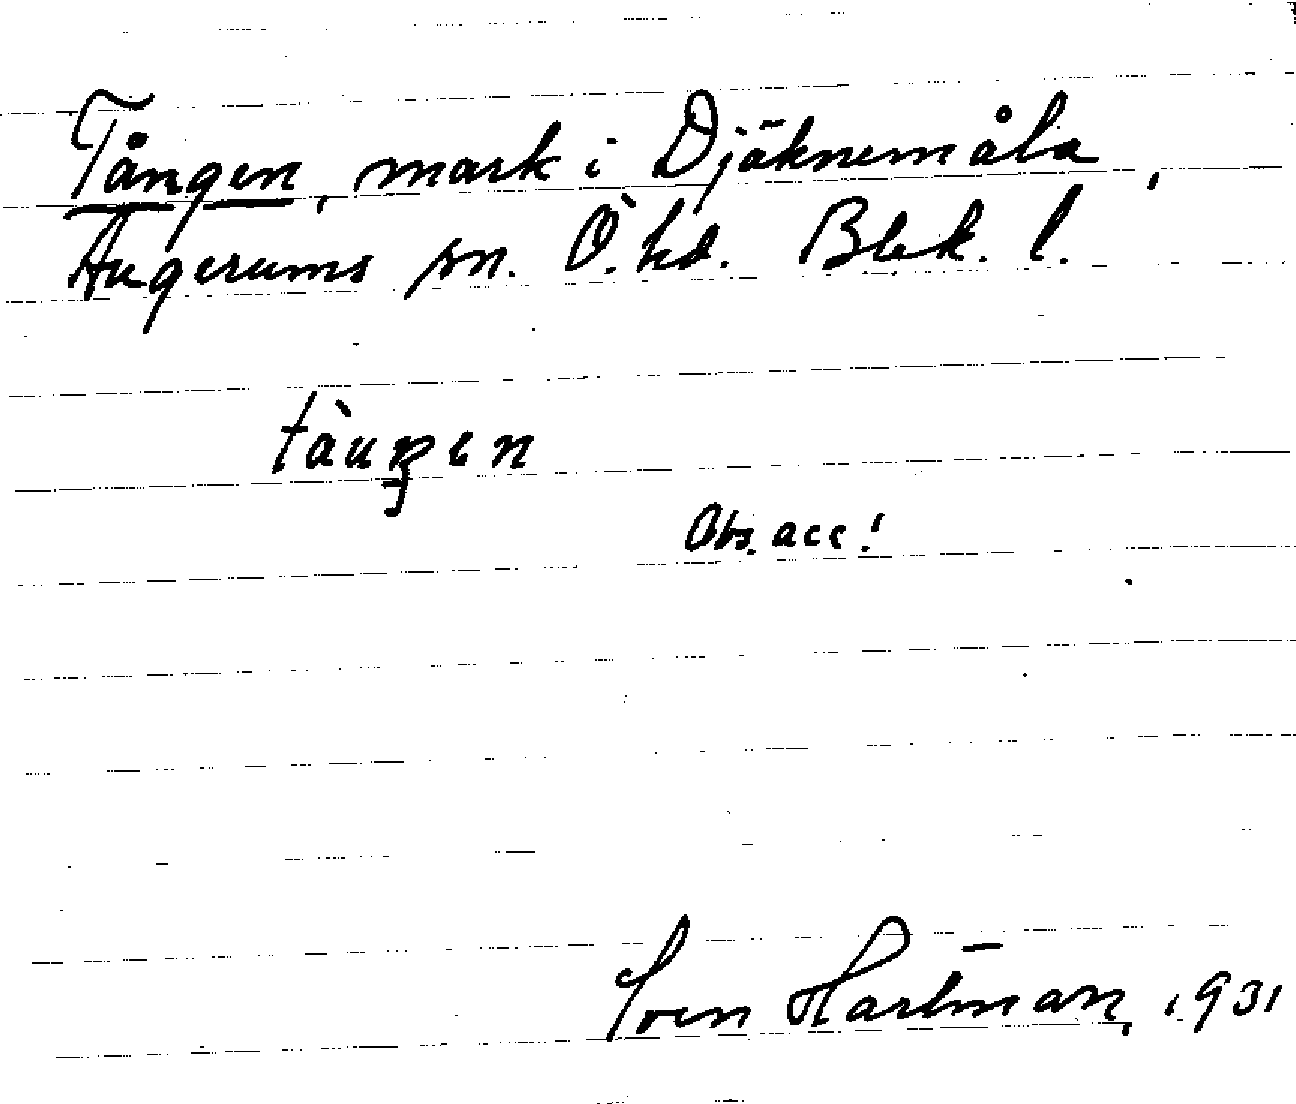 Tången, mark i Djäknemåla,
Augerums sn. Ö. hd. Blek. l.
Obs. acc!
Sven Hartman, 1931